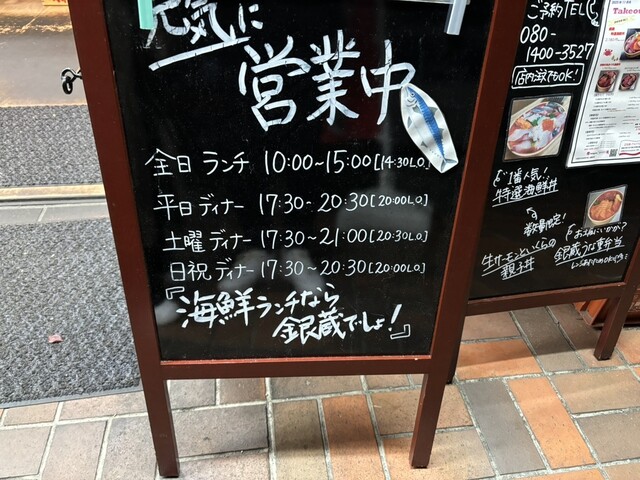 元気に
営業中
全日 ランチ 10:00~15:00[14:30L.O.]
平日 ディナー 17:30~20:30[20:00L.O.]
土曜 ディナー 17:30~21:00[20:30L.O.]
日祝 ディナー 17:30~20:30[20:00L.O.]
『海鮮ランチなら
銀蔵でしょ!』
ご予約TEL
080-
1400-3527
店内渡でもOK!
Takeou
1番人気!
特選海鮮丼
数量限定!
牛サーモンといくらの
親子丼
お土産にいかが?
銀蔵うな重弁当